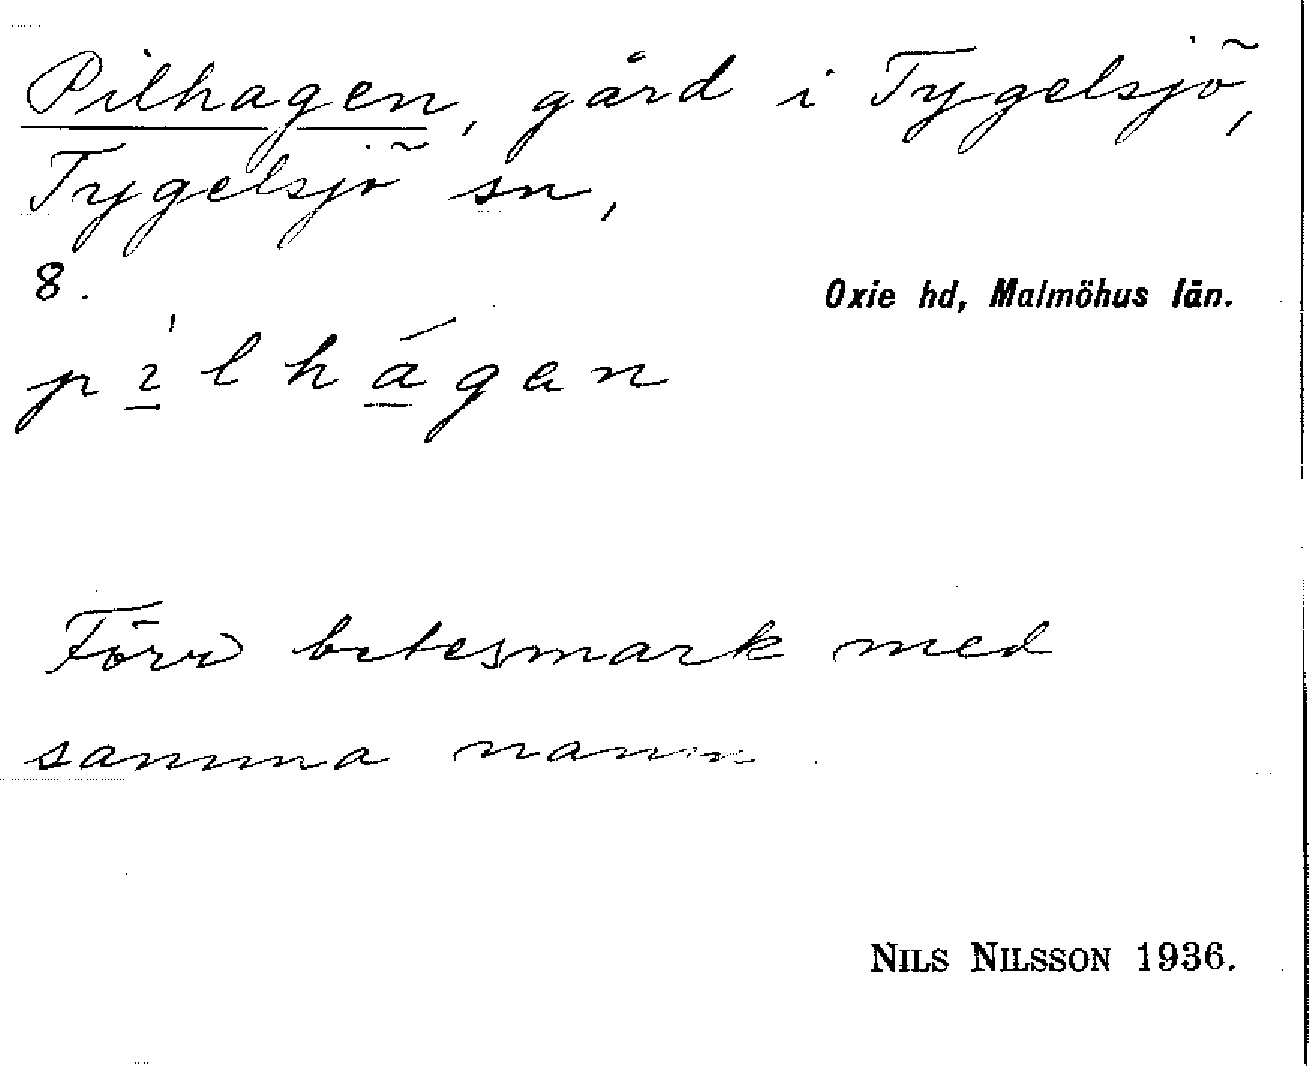 Pilhagen, gård i Tygelsjö,
Tygelsjö sn,
8.
Oxie hd, Malmöhus län.
pı̱̀lhá̱gan
Förr betesmark med
samma namn.
NILS NILSSON 1936.